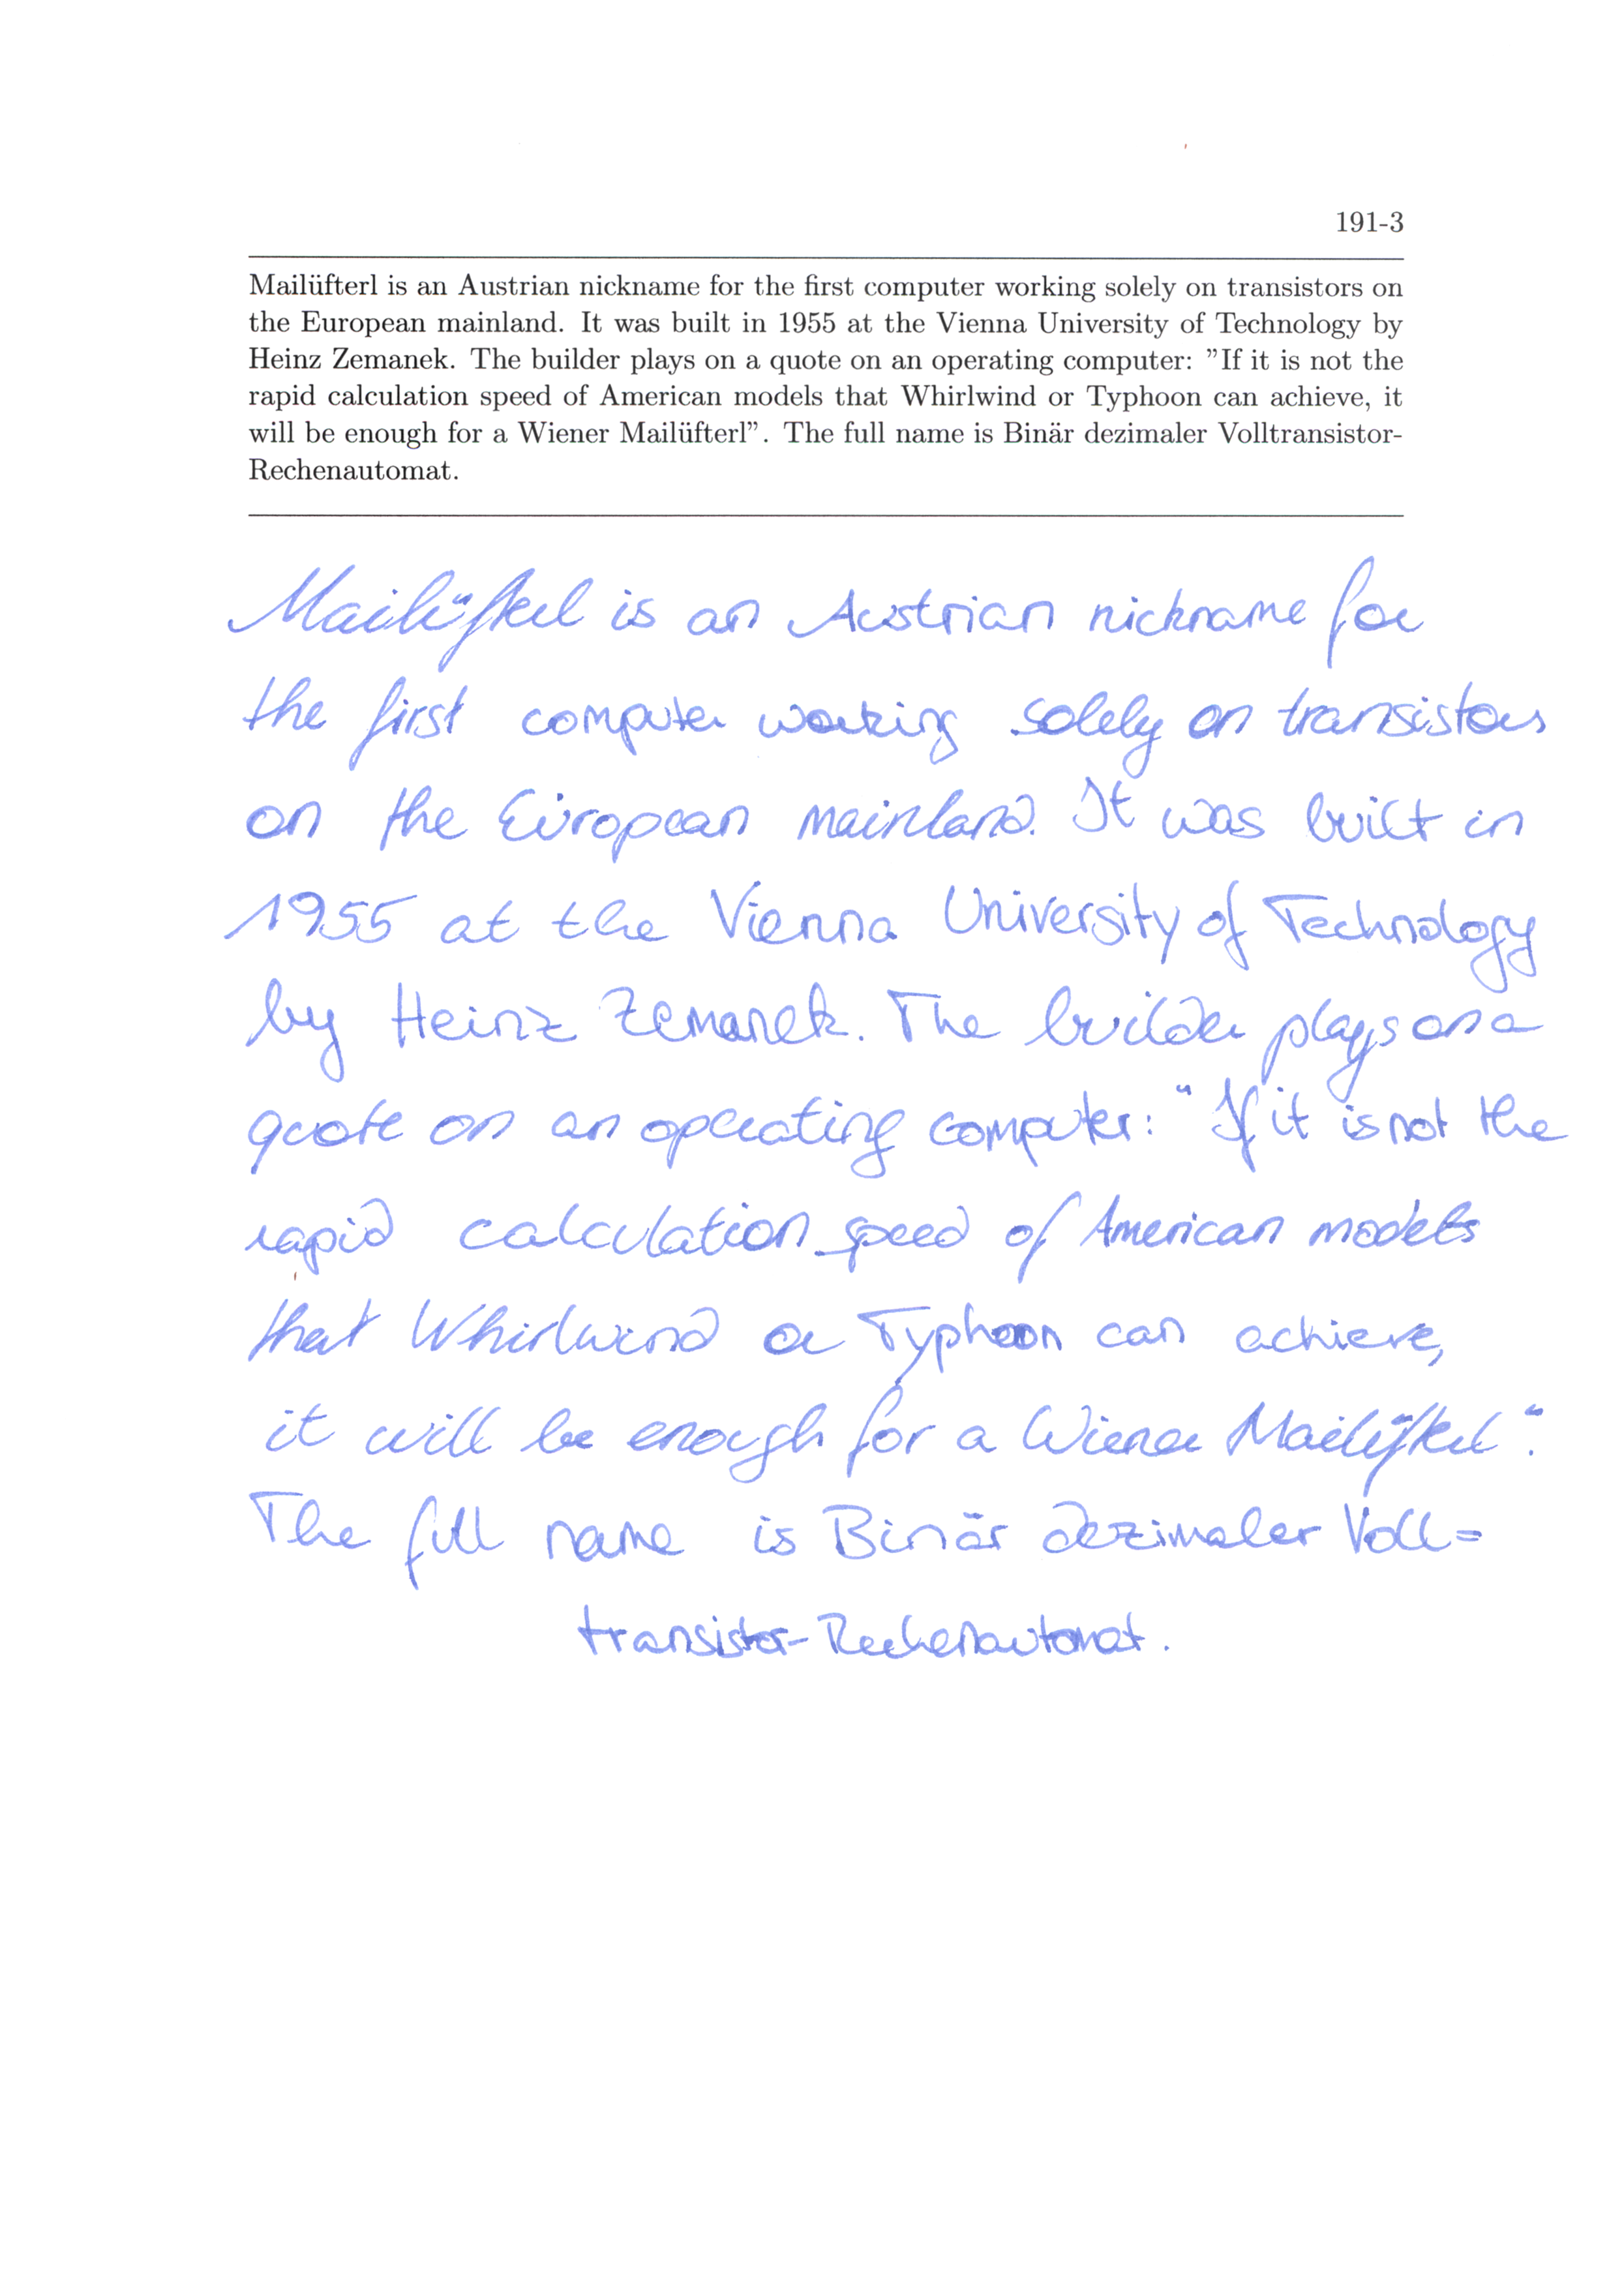 191-3
Mailüfterl is an Austrian nickname for the first computer working solely on transistors on
the European mainland. It was built in 1955 at the Vienna University of Technology by
Heinz Zemanek. The builder plays on a quote on an operating computer: ”If it is not the
rapid calculation speed of American models that Whirlwind or Typhoon can achieve, it
will be enough for a Wiener Mailüfterl”. The full name is Binär dezimaler Volltransistor-
Rechenautomat.
Mailüfterl is an Austrian nickname for
the first computer working solely on transistors
on the European mainland. It was built in
1955 at the Vienna University of Technology
by Heinz Zemanek. The builder plays on a
quote on an operating computer: “If it is not the
rapid calculation speed of American models
that Whirlwind or Typhoon can achieve,
it will be enough for a Wiener Mailüfterl“.
The full name is Binär dezimaler Voll=
transistor-Rechenautomat.